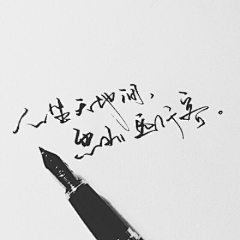 人生天地间，
忽如远行客。